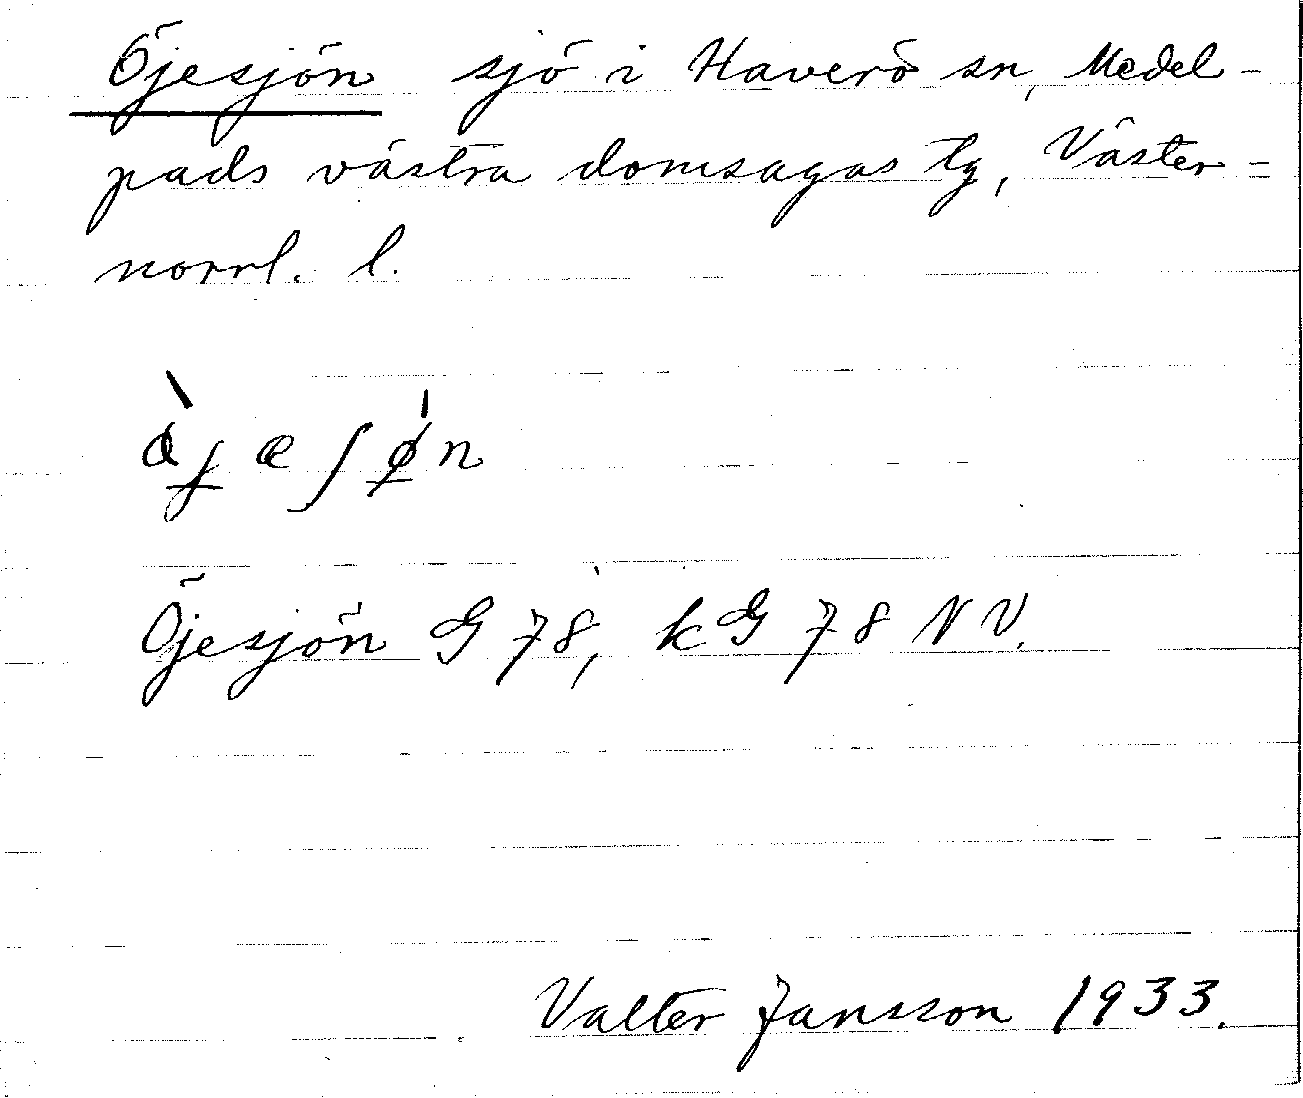 Öjesjön sjö i Haverö sn, Medel-
pads västra domsagas tg, Väster-
norrl. l.
Öjesjön G 78, kG 78 NV.
Valter Jansson 1933.